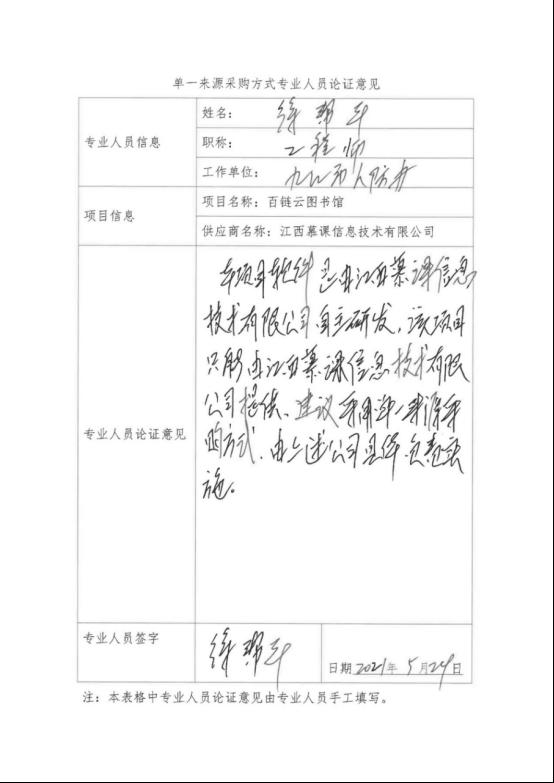 单一来源采购方式专业人员论证意见
专业人员信息
姓名：
职称：工程师
工作单位：九江市人防办
项目信息
项目名称：百链云图书馆
供应商名称：江西慕课信息技术有限公司
专业人员论证意见
本项目软件是由江西慕课信息
技术有限公司自主研发，该项目
只能由江西慕课信息技术有限
公司提供、建议采用单一来源采
购方式，由上述公司具体负责实
施。
专业人员签字
日期 2021年 5月24日
注：本表格中专业人员论证意见由专业人员手工填写。